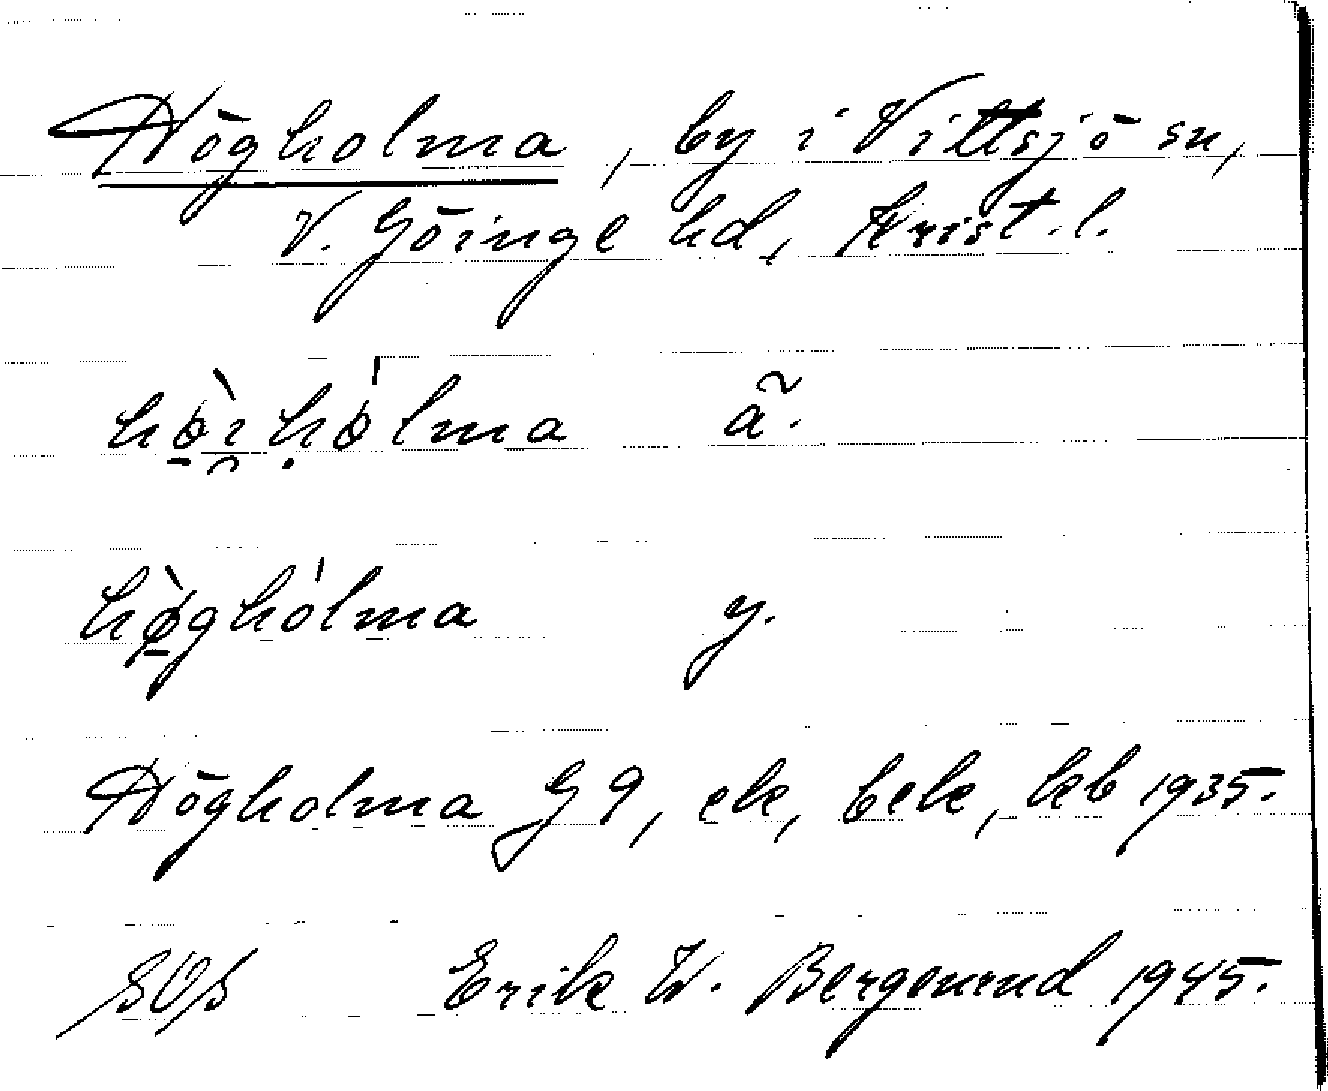 Högholma, by i Vittsjö sn,
V. Göinge hd, Krist. l.
hø̀i̯ḥólma ã.
hø̀ghólma y.
Högholma G 9, ek, bek, kb 1935.
SOS Erik W. Bergenrud 1945.